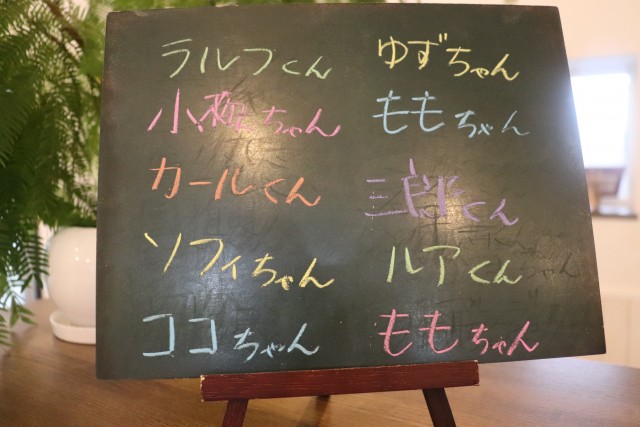 ラルフくん
小梅ちゃん
カールくん
ソフィちゃん
ココちゃん
ゆずちゃん
ももちゃん
三郎くん
ルアくん
ももちゃん